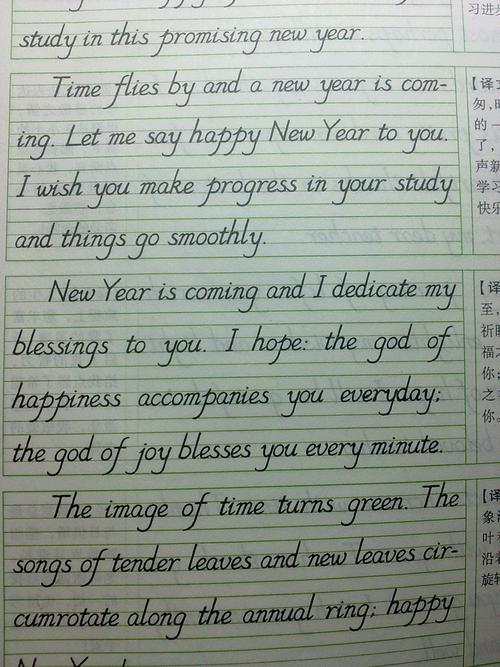 study in this promising new year.
Time flies by and a new year is com-
ing. Let me say happy New Year to you.
I wish you make progress in your study
and things go smoothly.
New Year is coming and I dedicate my
blessings to you. I hope: the god of
happiness accompanies you everyday;
the god of joy blesses you every minute.
The image of time turns green. The
songs of tender leaves and new leaves cir-
cumrotate along the annual ring; happy
习进步
【译文
匆,时
的一
了,
声新
学习
快乐
【译
至,
祈
福之
你;
之
你。
【译
象
叶
沿着
旋转